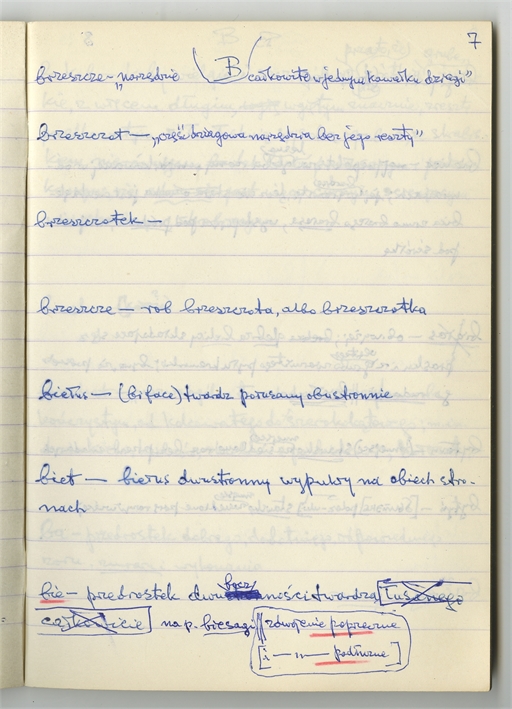 7
B
brzeszcze – „narzędzie całkowite w jednym kawałku dziegi”
brzeszczot — „część dziagowa narzędzia bez jego reszty”
brzeszczotek —
brzeszcze — rob brzeszczota, albo brzeszczotka
bietus — (biface) twardz porusany obustronnie
biet — bietus dwustronny wypukły na obiech stro-
nach
bie – przedrostek dwuboczności twardza
np. biesagi zdwojenie poprzeczne
[i — „ — podłużne]